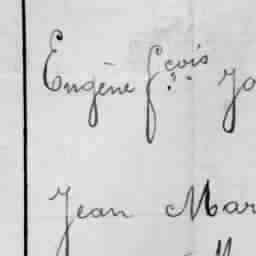 Eugène fçois Jo
Jean Mar